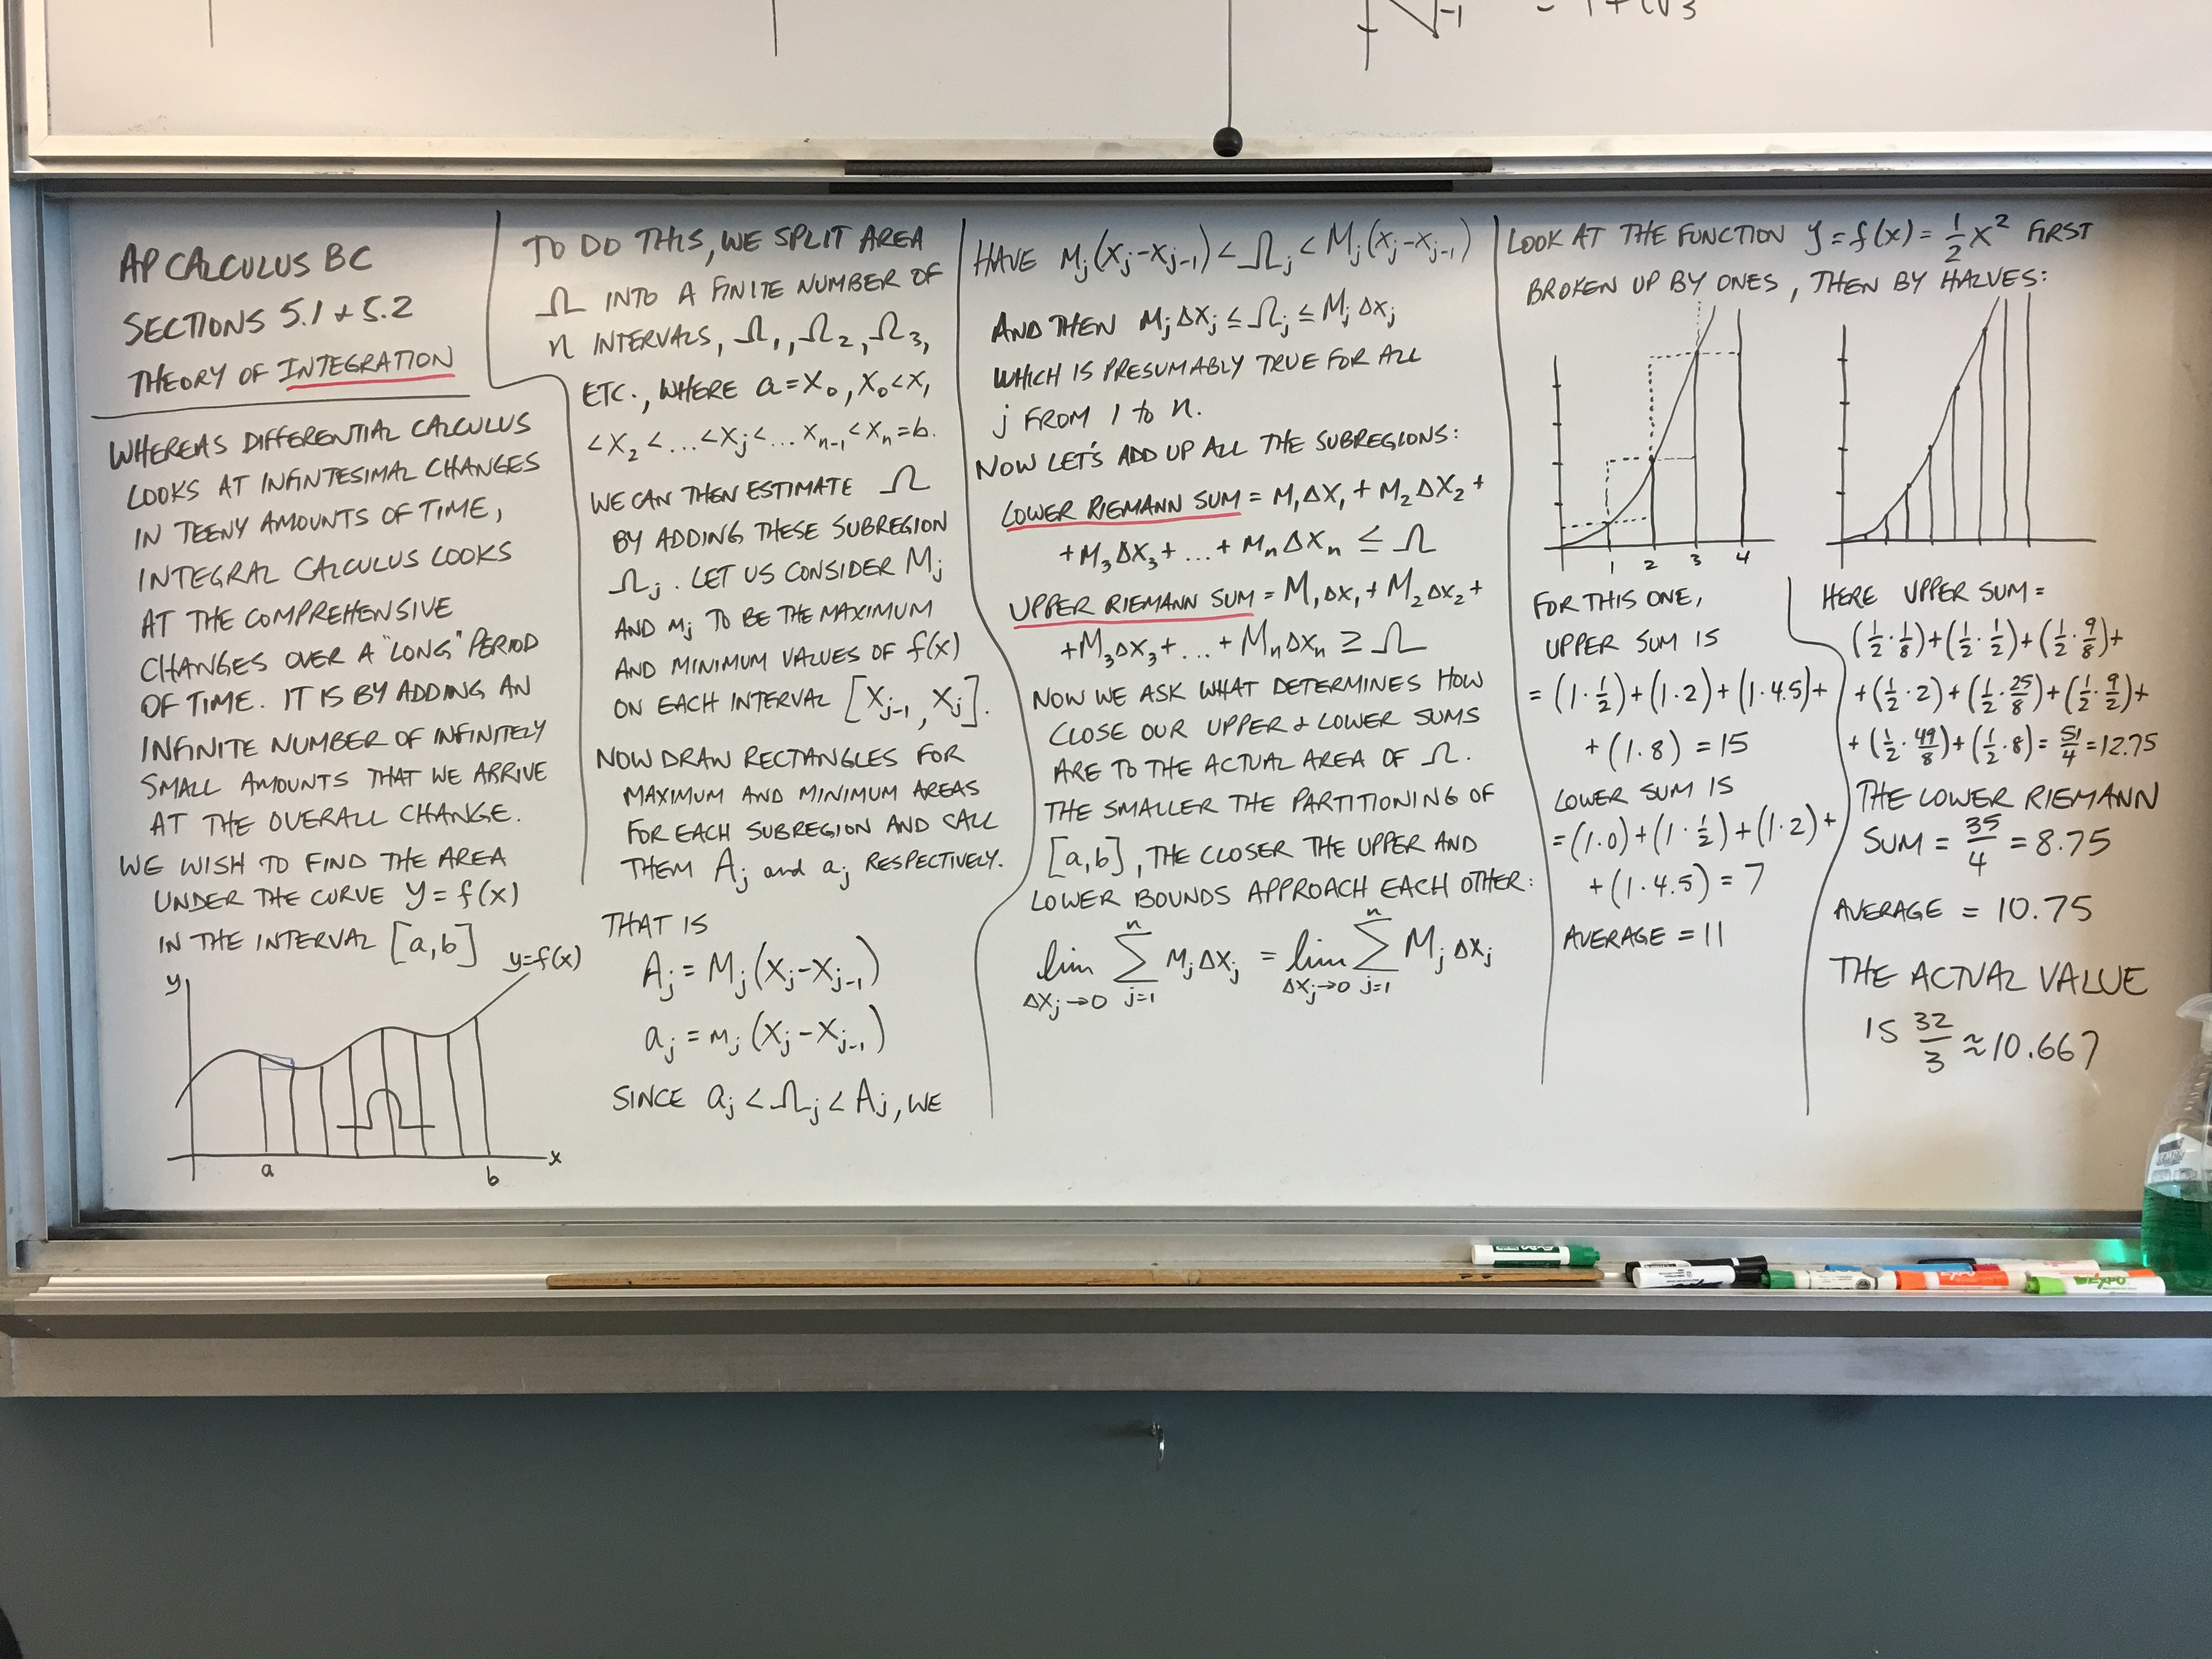 -1 = 1+i√3
AP CALCULUS BC
SECTIONS 5.1 + 5.2
THEORY OF INTEGRATION
WHEREAS DIFFERENTIAL CALCULUS
LOOKS AT INFINTESIMAL CHANGES
IN TEENY AMOUNTS OF TIME,
INTEGRAL CALCULUS LOOKS
AT THE COMPREHENSIVE
CHANGES OVER A "LONG" PERIOD
OF TIME. IT IS BY ADDING AN
INFINITE NUMBER OF INFINITELY
SMALL AMOUNTS THAT WE ARRIVE
AT THE OVERALL CHANGE.
WE WISH TO FIND THE AREA
UNDER THE CURVE y=f(x)
IN THE INTERVAL [a,b]
y=f(x)
y
Ω
x
a
b
TO DO THIS, WE SPLIT AREA
Ω INTO A FINITE NUMBER OF
n INTERVALS, Ω₁, Ω₂, Ω₃,
ETC., WHERE a=x₀, x₀<x₁
<x₂<...<xⱼ<...xₙ₋₁<xₙ=b.
WE CAN THEN ESTIMATE Ω
BY ADDING THESE SUBREGION
Ωⱼ. LET US CONSIDER Mⱼ
AND mⱼ TO BE THE MAXIMUM
AND MINIMUM VALUES OF f(x)
ON EACH INTERVAL [xⱼ₋₁, xⱼ].
NOW DRAW RECTANGLES FOR
MAXIMUM AND MINIMUM AREAS
FOR EACH SUBREGION AND CALL
THEM Aⱼ and aⱼ RESPECTIVELY.
THAT IS
Aⱼ = Mⱼ(xⱼ-xⱼ₋₁)
aⱼ = mⱼ(xⱼ-xⱼ₋₁)
SINCE aⱼ<Ωⱼ<Aⱼ, WE
HAVE mⱼ(xⱼ-xⱼ₋₁)<Ωⱼ<Mⱼ(xⱼ-xⱼ₋₁)
AND THEN mⱼΔxⱼ≤Ωⱼ≤MⱼΔxⱼ
WHICH IS PRESUMABLY TRUE FOR ALL
j FROM 1 to n.
NOW LET'S ADD UP ALL THE SUBREGIONS:
LOWER RIEMANN SUM = m₁Δx₁ + m₂Δx₂+
+m₃Δx₃+...+mₙΔxₙ ≤ Ω
UPPER RIEMANN SUM = M₁Δx₁+M₂Δx₂+
+M₃Δx₃+...+MₙΔxₙ ≥ Ω
NOW WE ASK WHAT DETERMINES HOW
CLOSE OUR UPPER + LOWER SUMS
ARE TO THE ACTUAL AREA OF Ω.
THE SMALLER THE PARTITIONING OF
[a,b], THE CLOSER THE UPPER AND
LOWER BOUNDS APPROACH EACH OTHER:
lim Δxⱼ→0 n Σ j=1 mⱼΔxⱼ = lim Δxⱼ→0 n Σ j=1 MⱼΔxⱼ
LOOK AT THE FUNCTION y=f(x)=½x² FIRST
BROKEN UP BY ONES, THEN BY HALVES:
1 2 3 4
FOR THIS ONE,
UPPER SUM IS
=(1·½)+(1·2)+(1·4.5)+
+(1·8)=15
LOWER SUM IS
=(1·0)+(1·½)+(1·2)+
+(1·4.5)=7
AVERAGE = 11
HERE UPPER SUM =
(1/2·1/8)+(1/2·1/2)+(1/2·9/8)+
+(1/2·2)+(1/2·25/8)+(1/2·9/2)+
+(1/2·49/8)+(1/2·8)=51/4=12.75
THE LOWER RIEMANN
SUM = 35/4 = 8.75
AVERAGE = 10.75
THE ACTUAL VALUE
IS 32/3 ≈10.667
EXPO